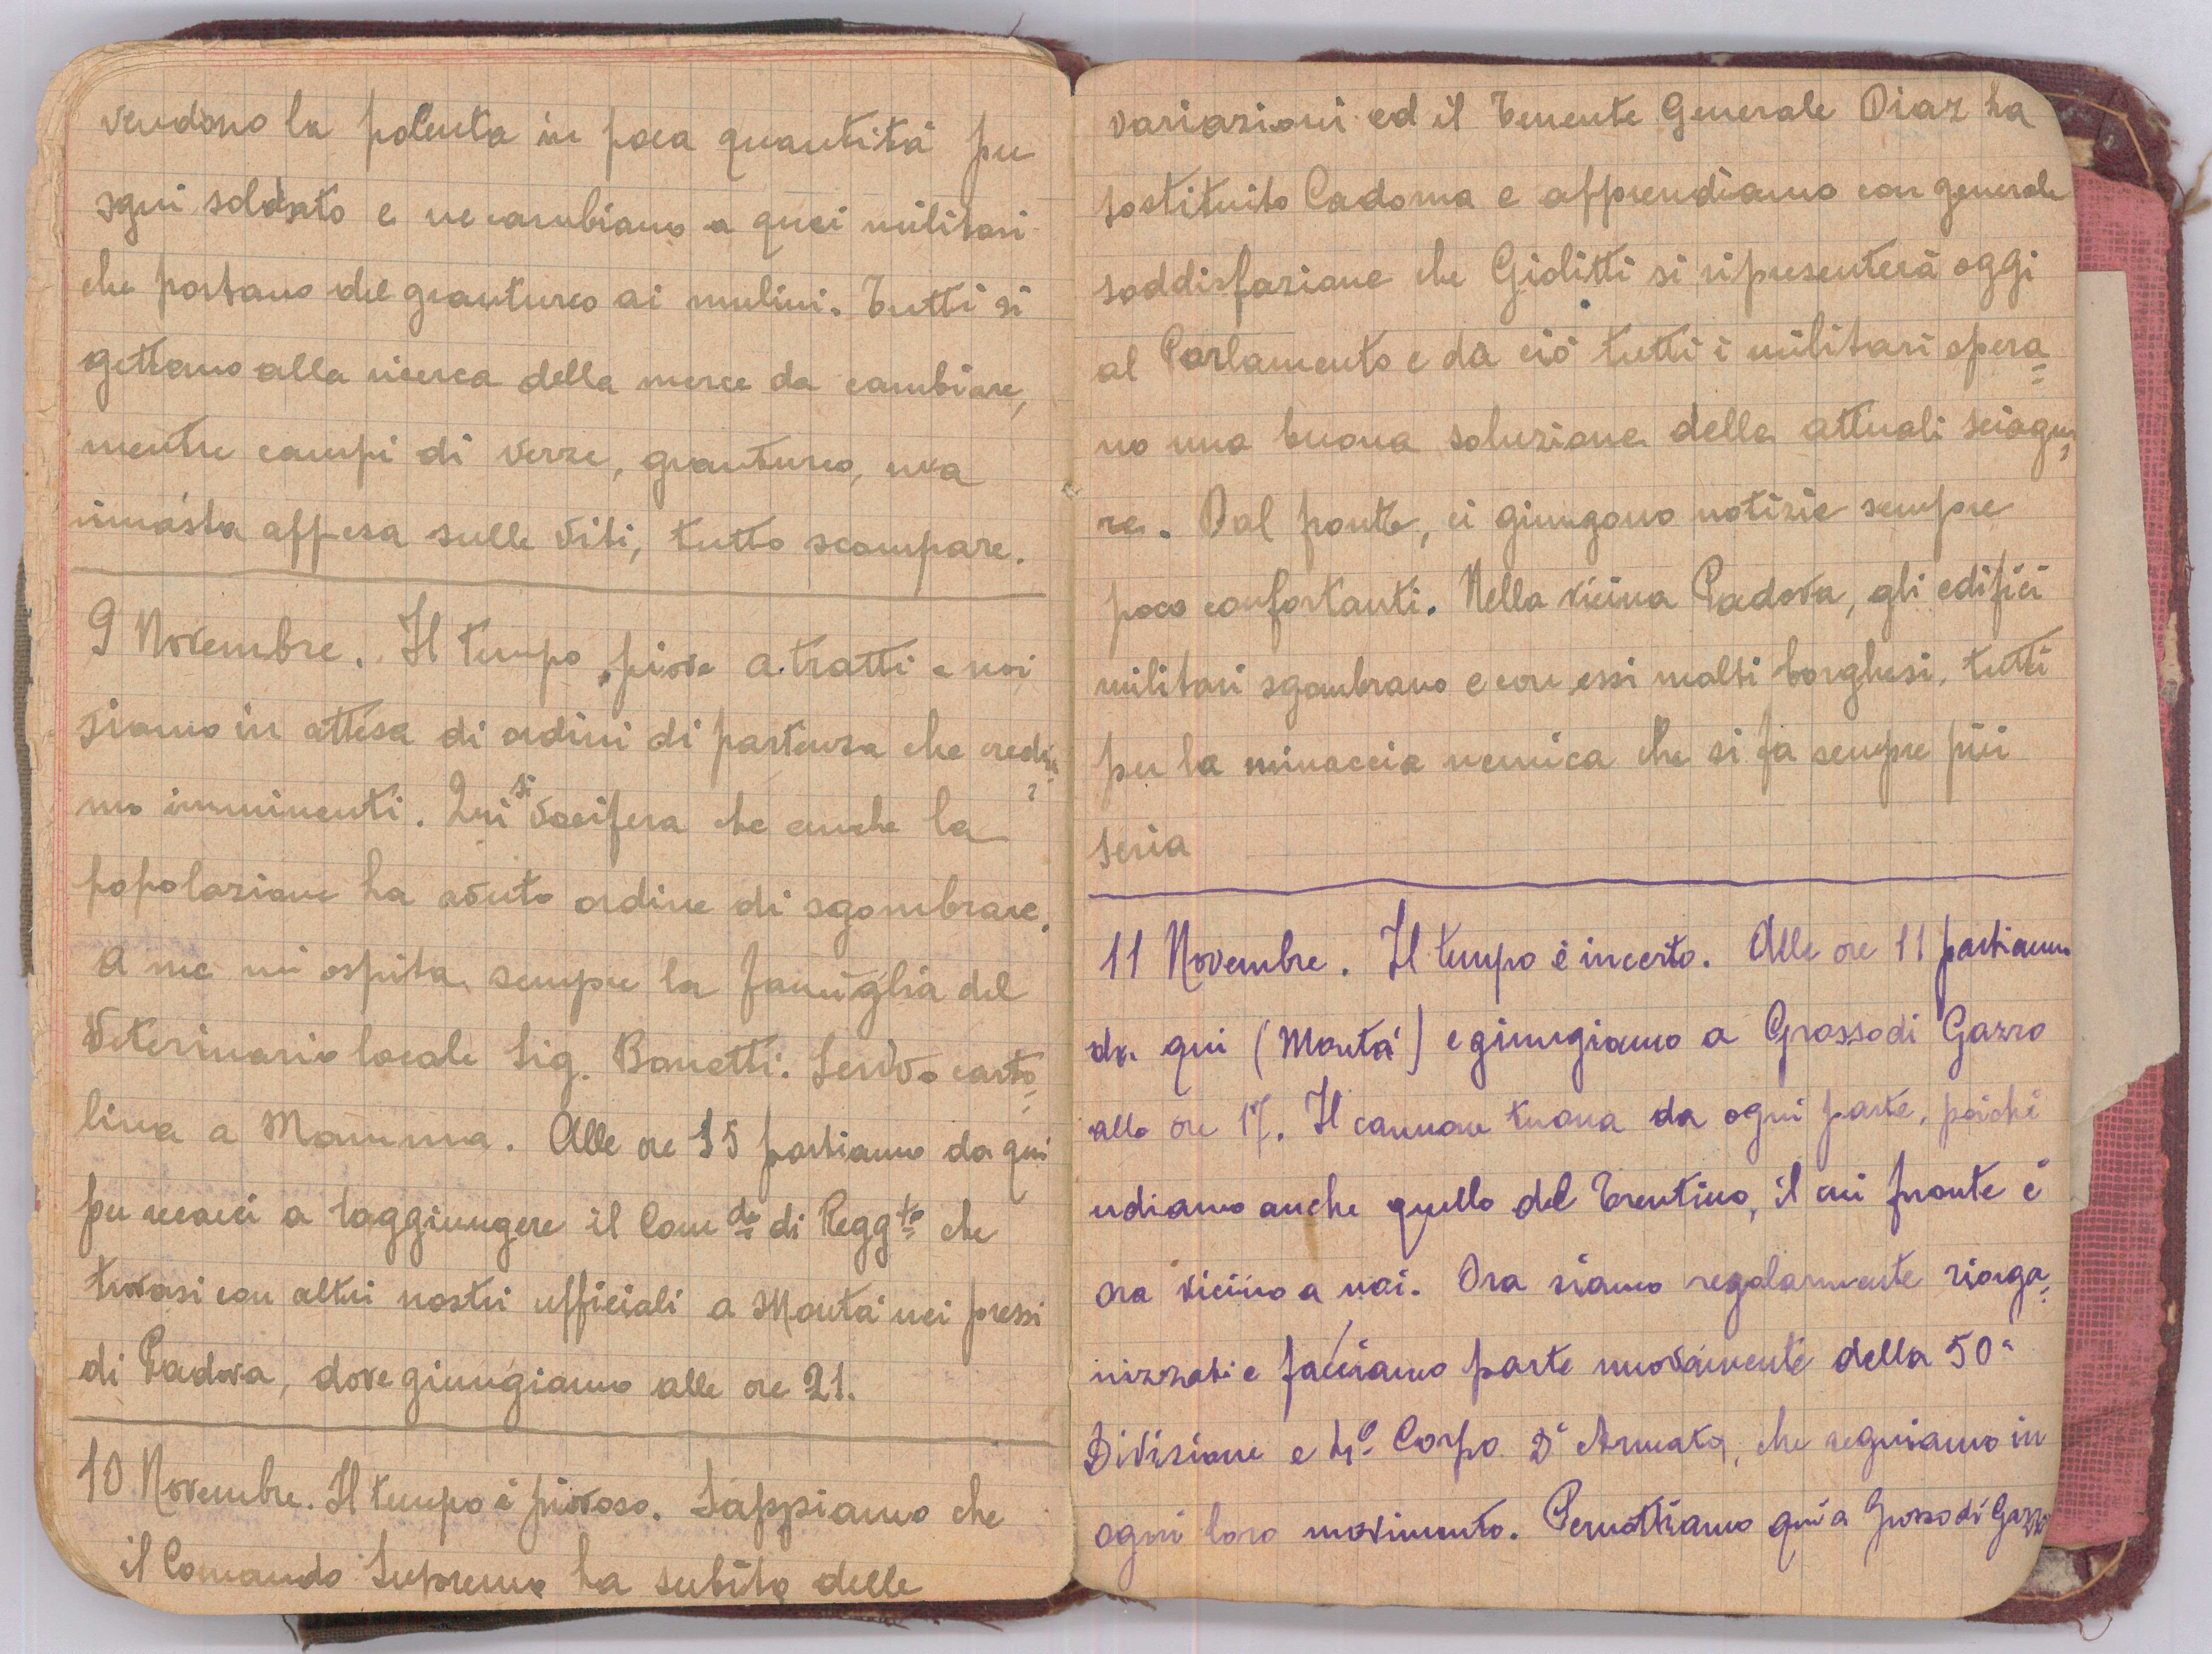 vendono la polenta in poca quantità per
ogni soldato e ne cambiano a quei militari
che portano del granturco ai mulini. Tutti si
gettano alla ricerca della merce da cambiare,
mentre campi di verze, granturco, uva
rimasta appesa sulle viti, tutto scompare.
9 Novembre. Il tempo, piove a tratti e noi
siamo in attesa di ordini di partenza che credia=
mo imminenti. Qui si vocifera che anche la
popolazione ha avuto ordine di sgombrare.
A me mi ospita sempre la famiglia del
Veterinario locale Sig. Bonetti. Scrivo carto=
lina a Mamma. Alle ore 15 partiamo da qui
per recarci a raggiungere il Comdo di Reggto che
trovasi con altri nostri ufficiali a Montà nei pressi
di Padova, dove giungiamo alle ore 21.
10 Novembre. Il tempo è piovoso. Sappiamo che
il Comando Supremo ha subito delle
variazioni ed il Tenente Generale Diaz ha
sostituito Cadorna e apprendiamo con generale
soddisfazione che Giolitti si ripresenterà oggi
al Parlamento e da ciò tutti i militari spera=
no una buona soluzione delle attuali sciagu=
re. Dal fronte, ci giungono notizie sempre
poco confortanti. Nella vicina Padova, gli edifici
militari sgombrano e con essi molti borghesi, tutti
per la minaccia nemica che si fa sempre più
seria
11 Novembre. Il tempo è incerto. Alle ore 11 partiamo
da qui (Montà) e giungiamo a Grossodi Gazzo
alle ore 17. Il cannone tuona da ogni parte, poichè
udiamo anche quello del Trentino, il cui fronte è
ora vicino a noi. Ora siamo regolarmente riorga=
nizzati e facciamo parte nuovamente della 50a
Divisione e 4o Corpo D'Armata, che seguiamo in
ogni loro movimento. Pernottiamo qui a Grosso di Gazzo